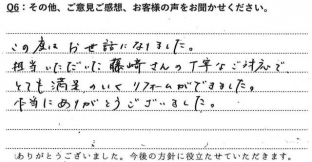 Q6：その他、ご意見ご感想、お客様の声をお聞かせください。
この度はお世話になりました。
担当いただいた藤崎さんの丁寧なご対応で、
とても満足のいくリフォームができました。
本当にありがとうございました。
ありがとうございました。今後の方針に役立たせていただきます。